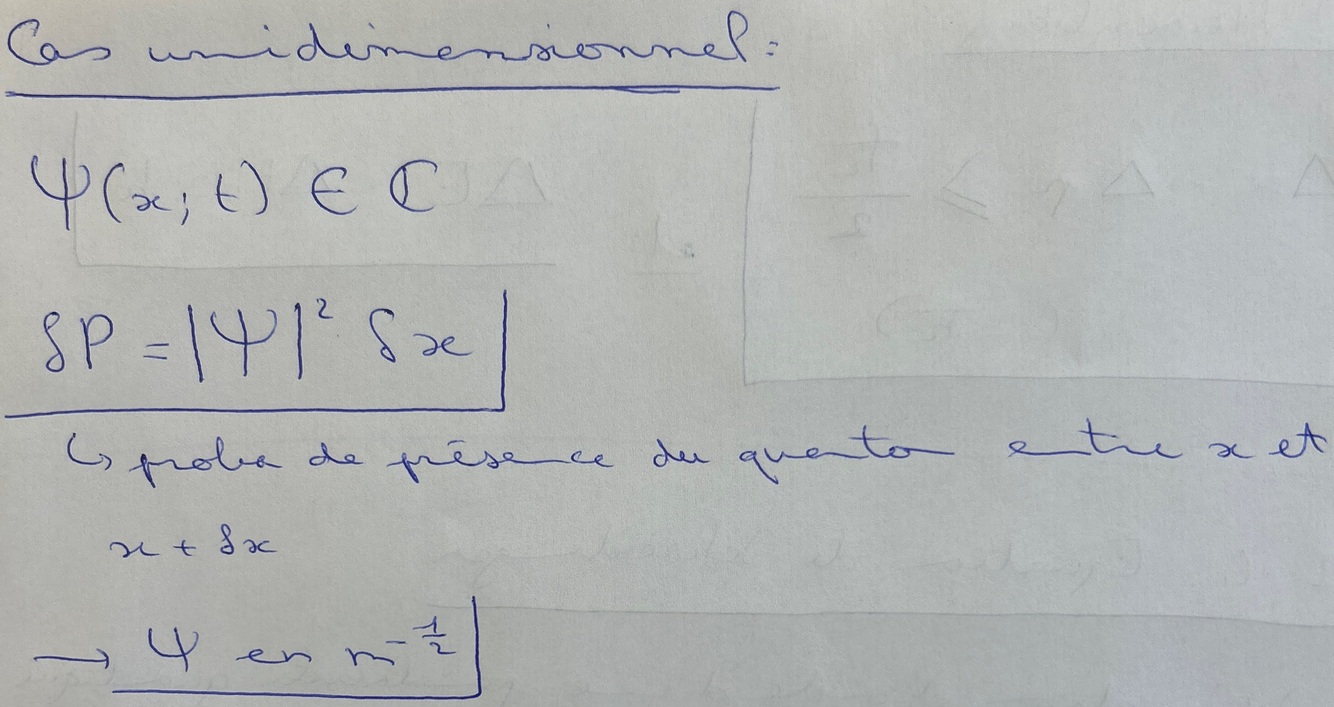 Cas unidimensionnel :
Ψ(x; t) ∈ ℂ
δP = |Ψ|² δx
↳ proba de présence du quanton entre x et
x + δx
→ Ψ en m^{-1/2}